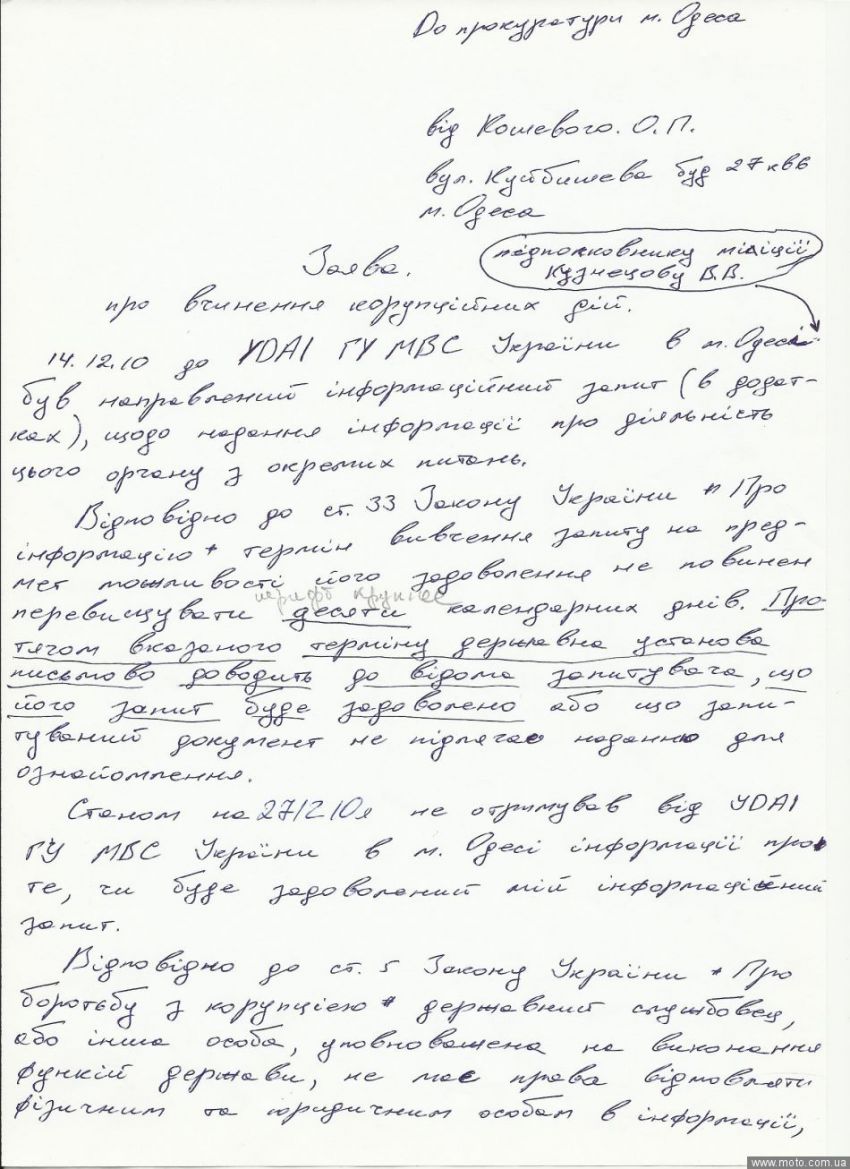 До прокуратури м. Одеса
від Кошевого. О.П.
вул. Куйбишева буд 27 кв6
м. Одеса
Заява.
підполковнику міліції
Кузнецову В.В.
про вчинення корупційних дій.
14.12.10 до УДАІ ГУ МВС України в м. Одесі
був направлений інформаційний запит (в додат-
ках), щодо надання інформації про діяльність
цього органу з окремих питань.
Відповідно до ст. 33 Закону України " Про
інформацію " термін вивчення запиту на пред-
мет можливості його задоволення не повинен
шрифт крупнее
перевищувати десяти календарних днів. Про-
тягом вказаного терміну державна установа
письмово доводить до відома запитувача, що
його запит буде задоволено або що запи-
туваний документ не підлягає наданню для
ознайомлення.
Станом на 27/12/10 я не отримував від УДАІ
ГУ МВС України в м. Одесі інформації про
те, чи буде задоволений мій інформаційний
запит.
Відповідно до ст. 5 Закону України " Про
боротьбу з корупцією " державний службовец,
або інша особа, уповноважена на виконання
функій держави, не має права відмовляти
фізичним та юридичним особам в інформації,
www.moto.com.ua